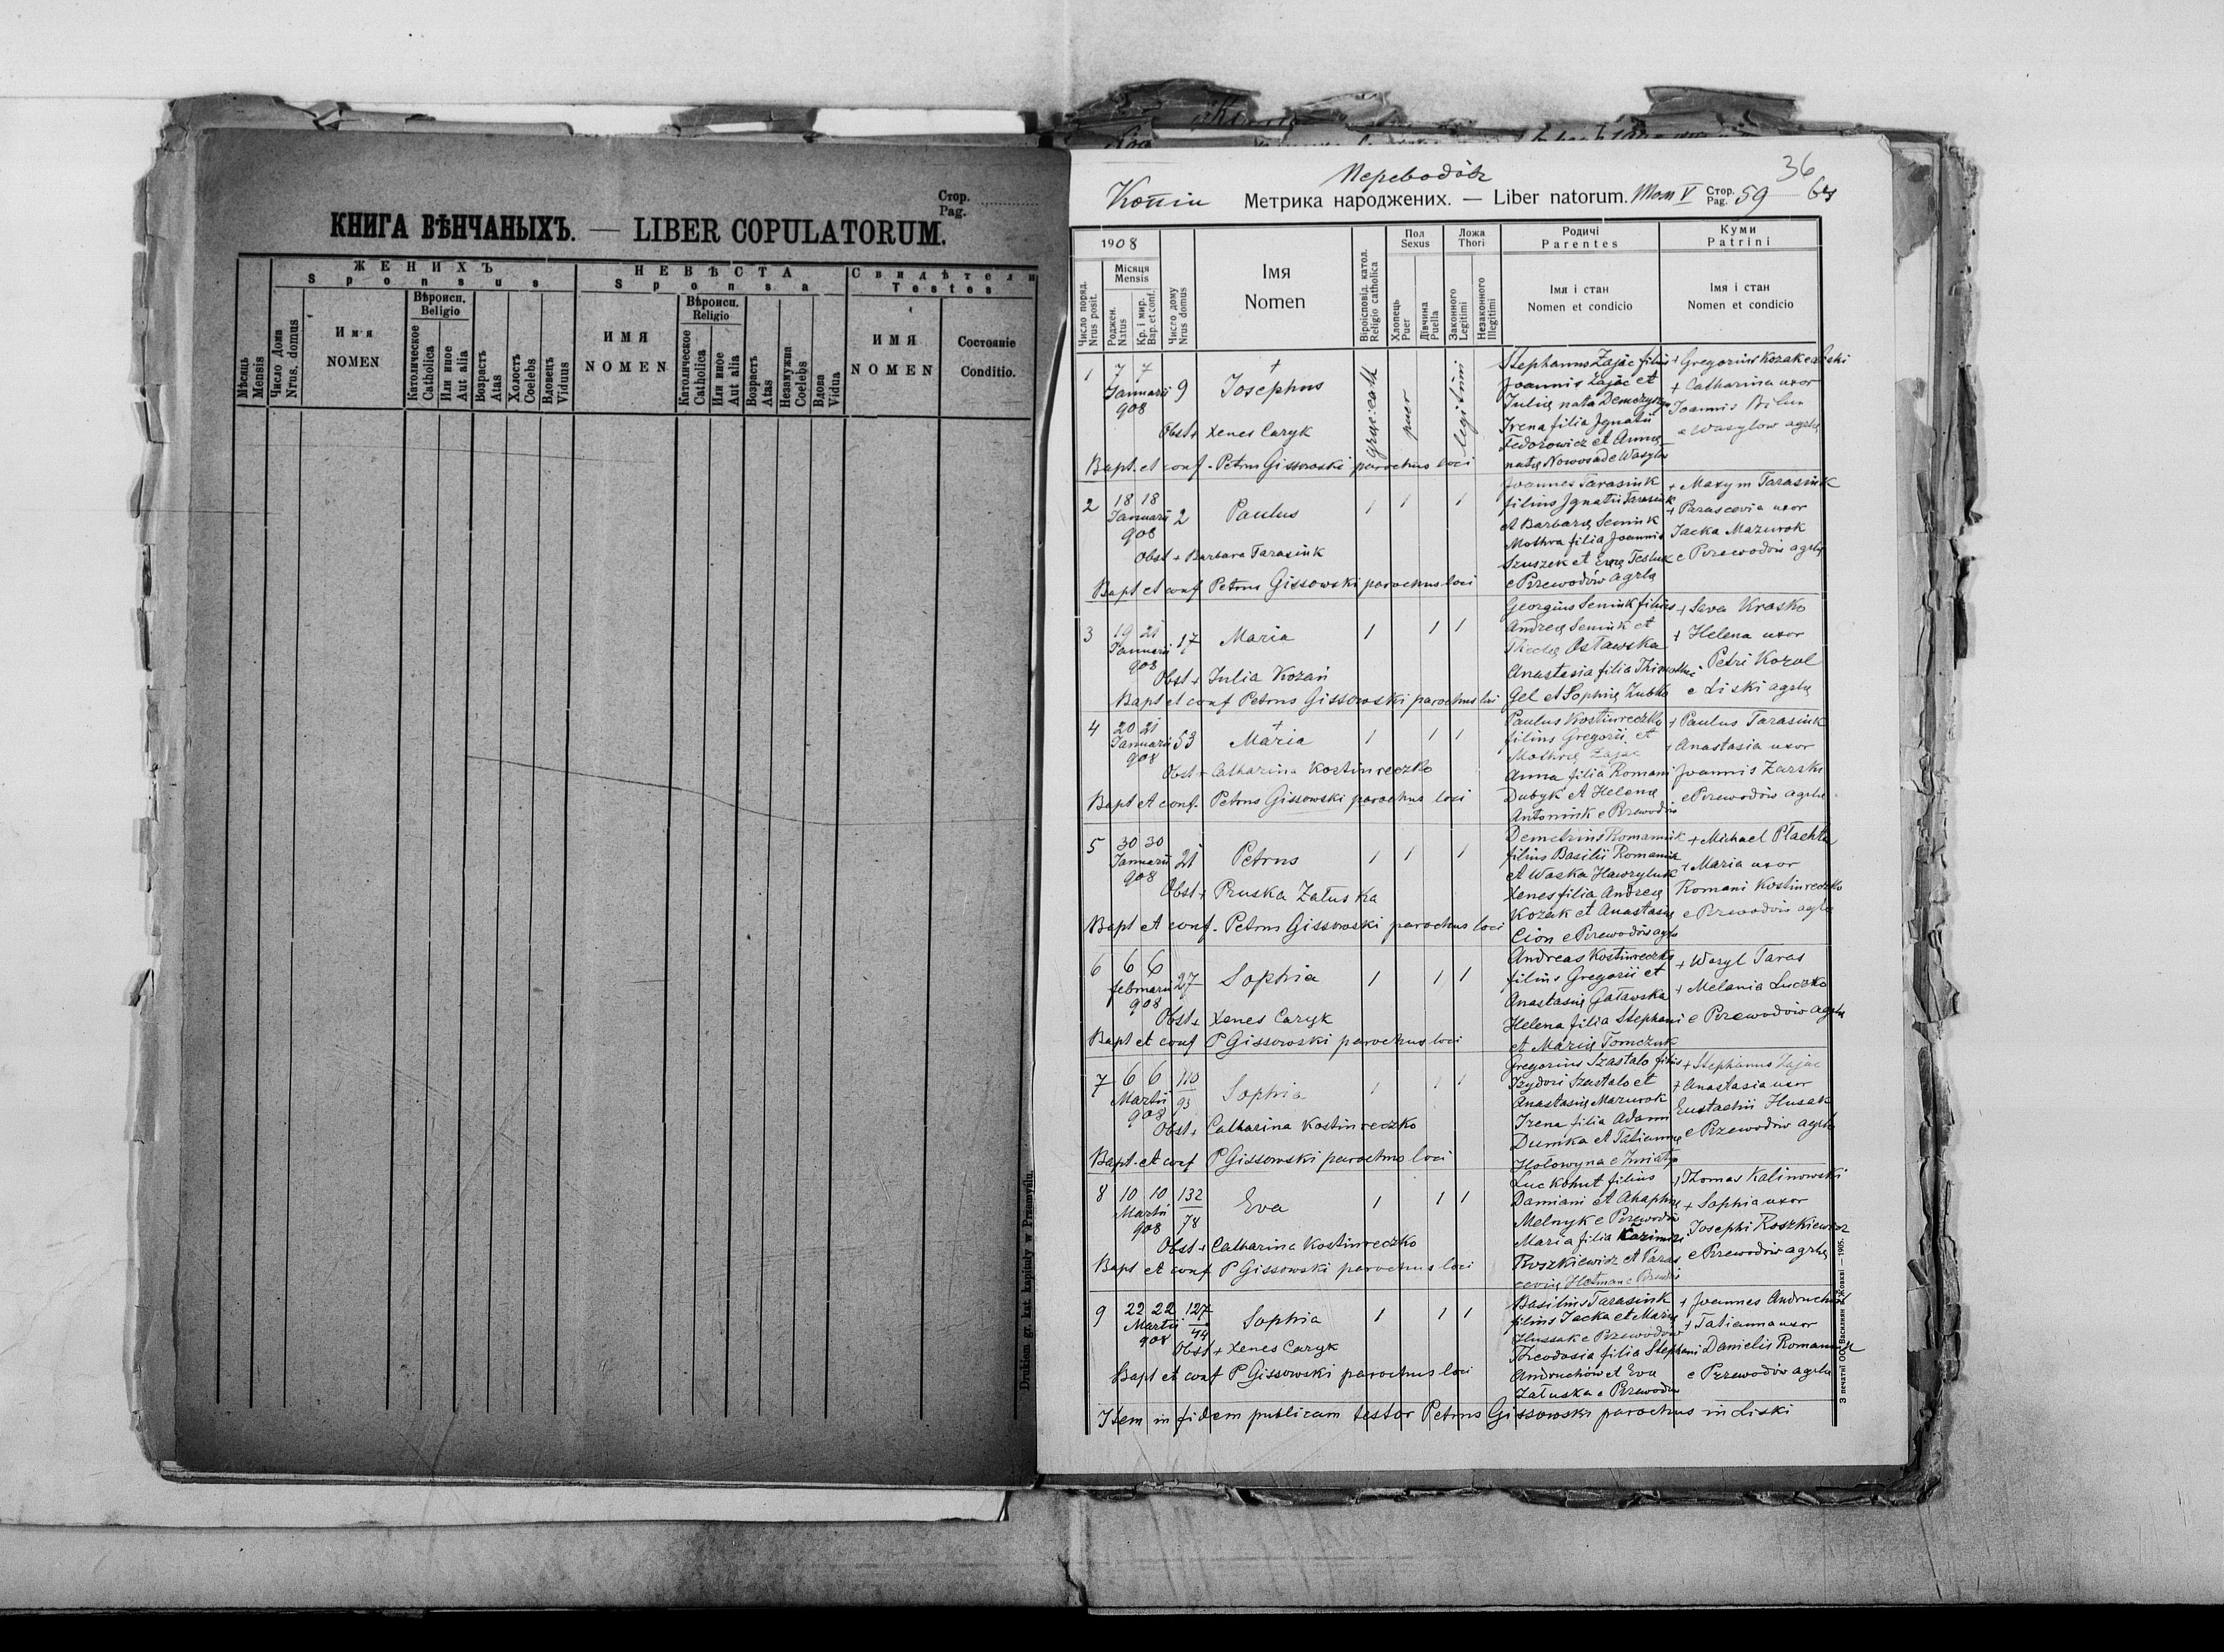 Стор.
Pag.
КНИГА ВѢНЧАНЫХЪ. — LIBER COPULATORUM.
Мѣсяць
Mensis
ЖЕНИХЪ
Sponsus
НЕВѢСТА
Sponsa
Свидѣтели
Testes
Число Дома
Nrus. domus
Имя
NOMEN
Вѣроисп.
Religio
Католическое
Catholica
Или иное
Aut alia
Возрастъ
Atas
Холостъ
Coelebs
Вдовецъ
Viduus
ИМЯ
NOMEN
Вѣроисп.
Religio
Католическое
Catholica
Или иное
Aut alia
Возрастъ
Atas
Незамужна
Coelebs
Вдова
Vidua
ИМЯ
NOMEN
Состояніе
Conditio.
Drukiem gr. kat. kapituły w Przemyślu.
36
Переводôв
Копіи Метрика народжених. — Liber natorum. Том V Стор. Pag. 59
1908
Число поряд.
Nrus posit.
Місяця
Mensis
Роджен.
Natus
Кр. і мир.
Bap. et conf.
Число дому
Nrus domus
Імя
Nomen
Віроісповід. катол.
Religio catholica
Пол
Sexus
Хлопець
Puer
Дівчина
Puella
Ложа
Thori
Законного
Legitimi
Незаконного
Illegitimi
Родичі
Parentes
Імя і стан
Nomen et condicio
Куми
Patrini
Імя і стан
Nomen et condicio
1 7 7 Januarii 908 9 + Josephus graec. cath puer legitimi
Stephanus Zając filius
Joannis Zając et
Julię nata Demczyszyn
Irena filia Jgnatii
Fedorowicz et Annę
natę Nowosad e Wasylow
+ Gregorius Kozakewski
+ Catharina uxor
Joannis Bilun
e Wasylow agrlę
Obst + Xenes Caryk
Bapt. et conf. Petrus Gissowski parochus loci
2 18 18 Januarii 908 2 Paulus 1 1 1
Joannes Tarasiuk
filius Jgnatii Tarasiuk
et Barbarę Semiuk
Mothra filia Joannis
Szuszek et Evę Tesluk
e Przewodów agrlę
+ Maxym Tarasiuk
+ Parascevia uxor
Jacka Mazurok
e Przewodów agrlę
Obst + Barbara Tarasiuk
Bapt et conf Petrus Gissowski parochus loci
3 19 21 Januarii 908 17 Maria 1 1 1
Georgius Semiuk filius
Andreę Semiuk et
Theclę Ostawska
Anastasia filia Thimothei
Gel et Sophię Zubko
+ Sava Krasko
+ Helena uxor
Petri Kozul
e Liski agrlę
Obst + Julia Kozań
Bapt et conf Petrus Gissowski parochus loci
4 20 21 Januarii 908 53 + Maria 1 1 1
Paulus Kostiureczko
filius Gregorii et
Mothrę Zając
Anna filia Romani
Dubyk et Helenę
Antoniuk e Przewodów
+ Paulus Tarasiuk
+ Anastasia uxor
Joannis Zarski
e Przewodów agrlę
Obst + Catharina Kostiureczko
Bapt et conf. Petrus Gissowski parochus loci
5 30 30 Januarii 908 21 Petrus 1 1 1
Demetrius Romaniuk
filius Basilii Romaniuk
et Waska Hawryluk
Xenes filia Andreę
Kozak et Anastasię
Cion e Przewodów agrlę
+ Michael Płachta
+ Maria uxor
Romani Kostiureczko
e Przewodów agrlę
Obst + Pruska Załuska
Bapt et conf. Petrus Gissowski parochus loci
6 6 6 februarii 908 27 Sophia 1 1 1
Andreas Kostiureczko
filius Gregorii et
Anastasię Gaławska
Helena filia Stephani
et Marię Tomczuk
+ Wasyl Taras
+ Melania Luczko
e Przewodów agrlę
Obst + Xenes Caryk
Bapt et conf P Gissowski parochus loci
7 6 6 Martii 908 110/93 Sophia 1 1 1
Gregorius Szastalo filius
Izydori Szastalo et
Anastasię Mazurok
Irena filia Adami
Dumka et Tatiannę
Hołowyna e Zniatyn
+ Stephanus Zając
+ Anastasia uxor
Eustachii Husak
e Przewodów agrlę
Obst + Catharina Kostiureczko
Bapt. et conf P Gissowski parochus loci
8 10 10 Martii 908 132/78 Eva 1 1 1
Luc Kohut filius
Damiani et Ahaphię
Melnyk e Przewodów
Maria filia Kazimiri
Roszkiewicz et Paras
cevię Hetman e Przewodów
+ Thomas Kalinowski
+ Sophia uxor
Josephi Roszkiewicz
e Przewodów agrlę
Obst + Catharina Kostiureczko
Bapt et conf P Gissowski parochus loci
9 22 22 Martii 908 127/44 Sophia 1 1 1
Basilius Tarasiuk
filius Jacka et Marię
Hussak e Przewodów
Theodosia filia Stephani
Andruchów et Eva
Załuska e Przewodów
+ Joannes Andruchów
+ Tatianna uxor
Danielis Romaniuk
e Przewodów agrlę
Obst + Xenes Caryk
Bapt et conf P Gissowski parochus loci
Item in fidem publicam testor Petrus Gissowski parochus in Liski
З печатні ОО. Василиян в Жовкві — 1905.